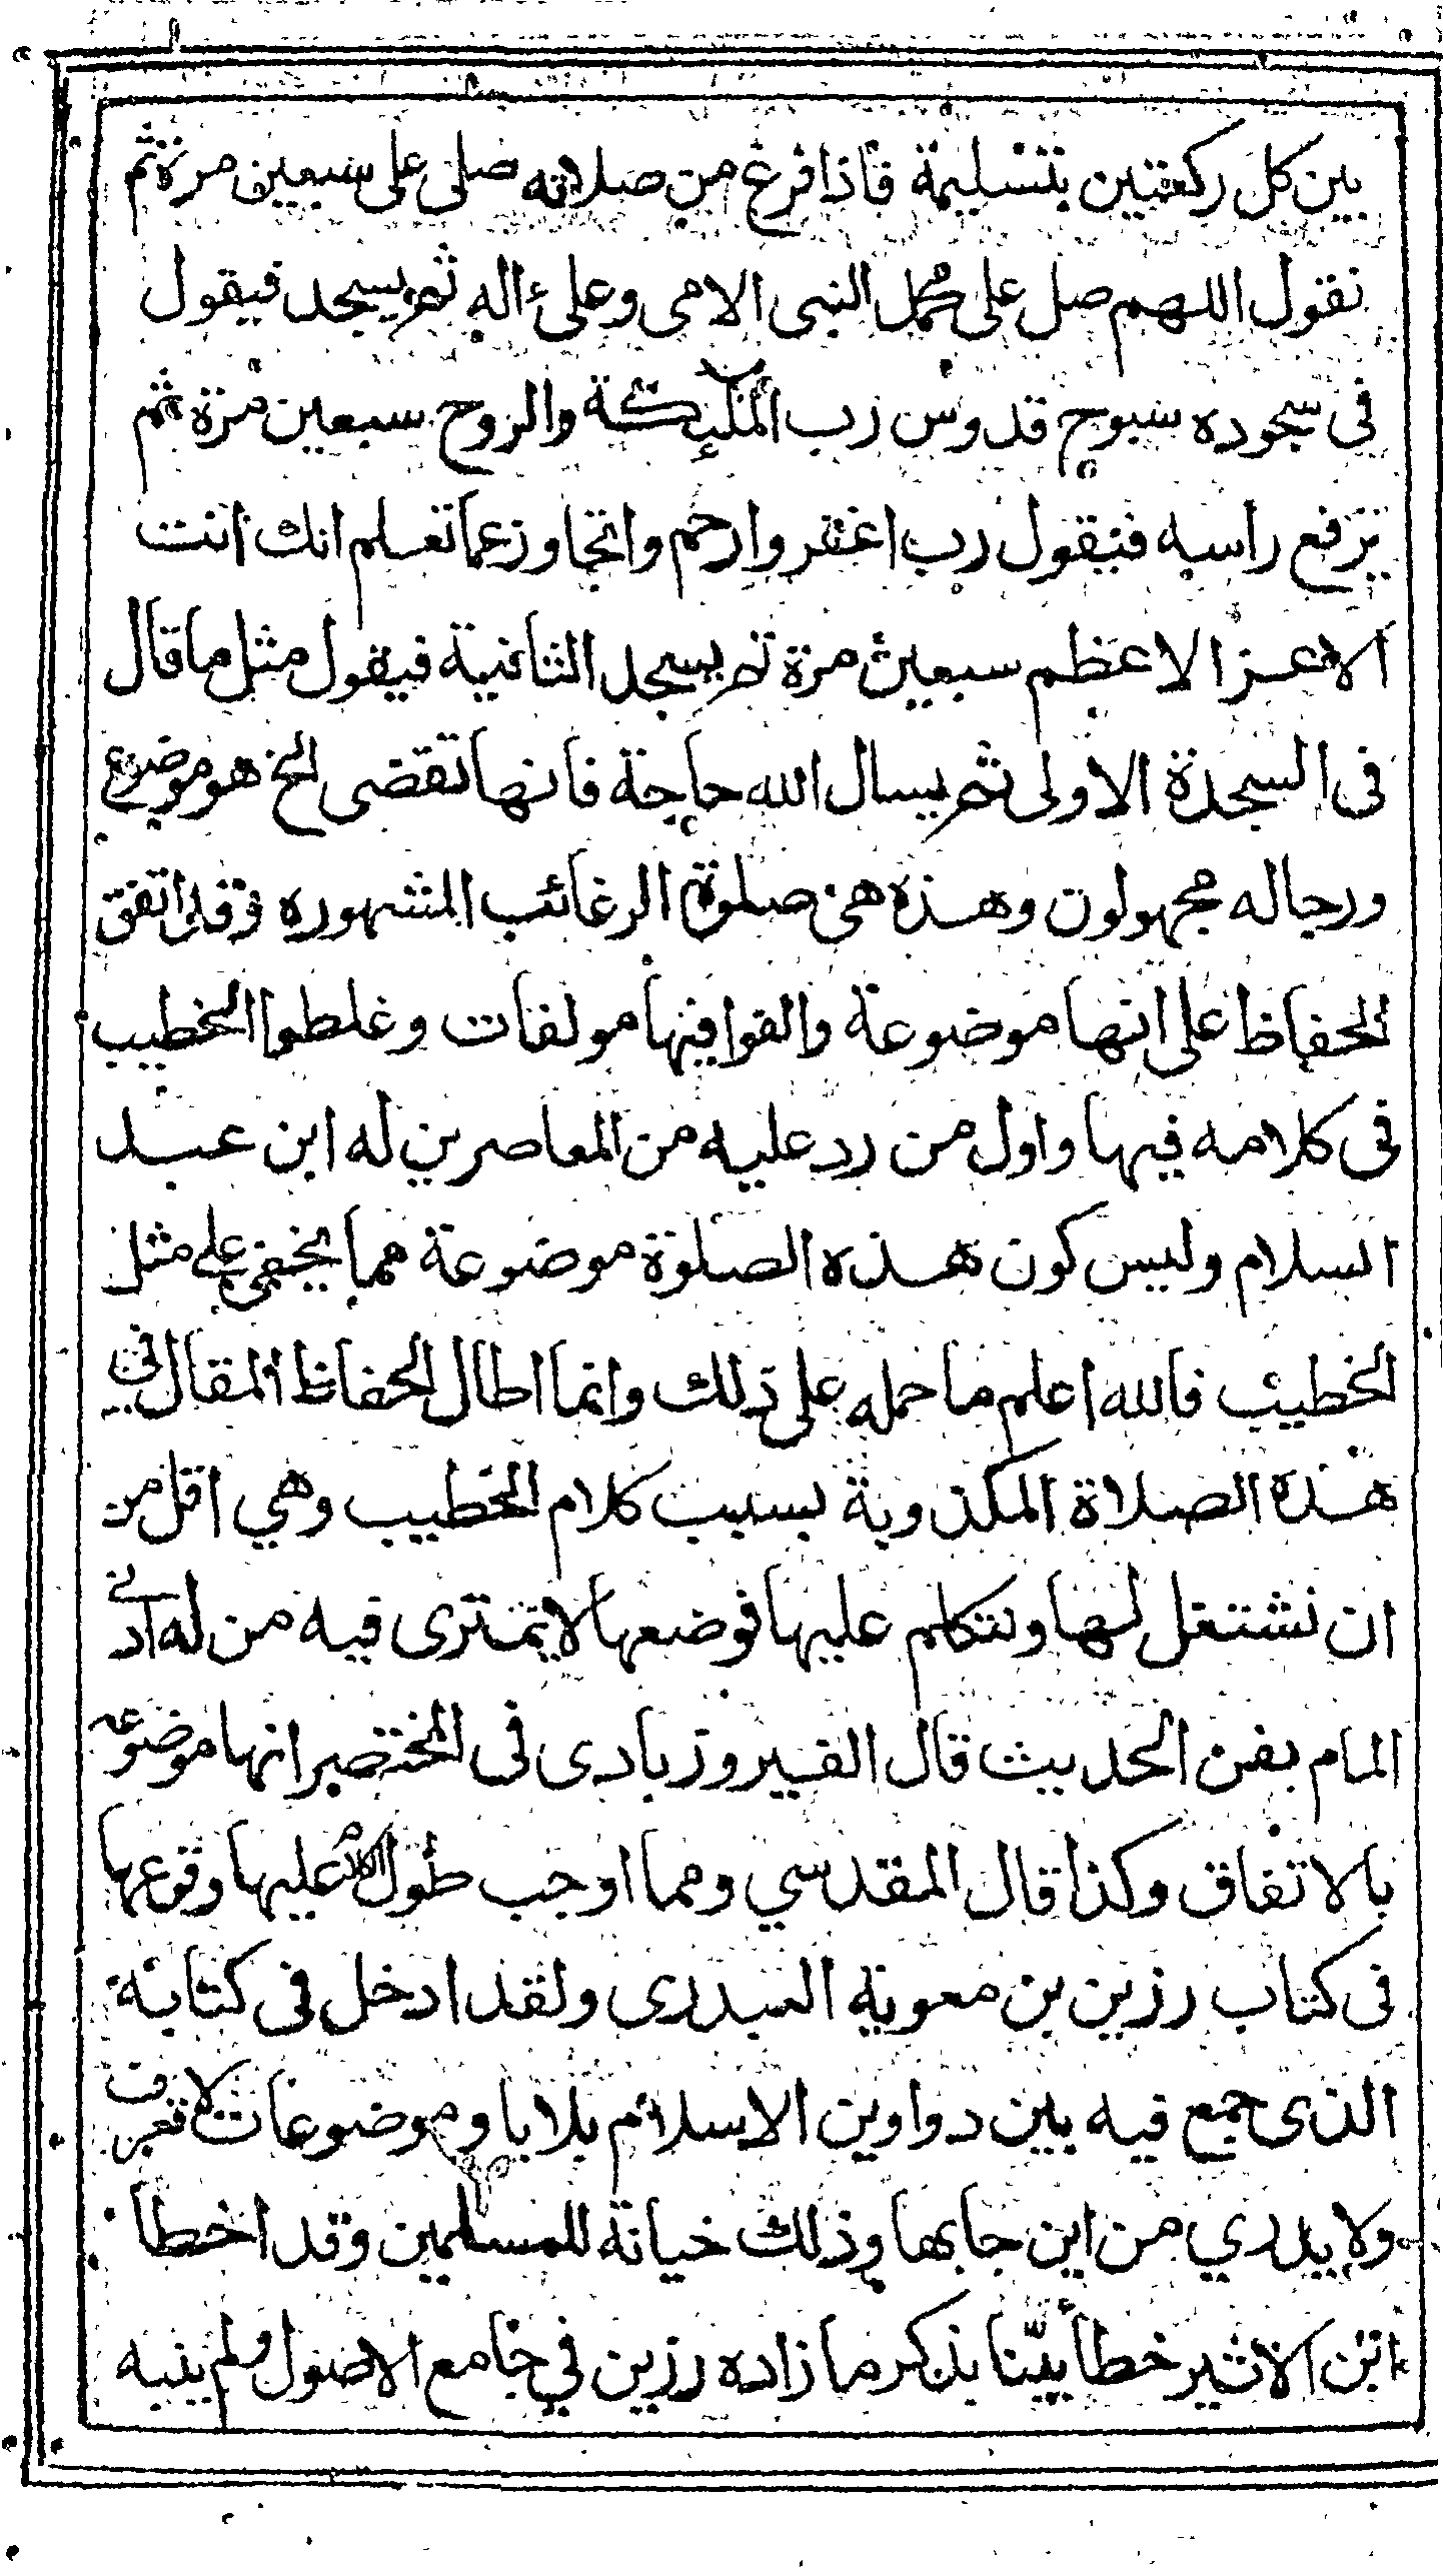 بين كل ركعتين بتسليمة فاذا فرغ من صلاته صلى على سبعين مرة ثم
نقول اللهم صل على محمد النبى الامى وعلى اله ثم يسجد فيقول
فى سجوده سبوح قدوس رب الملئكة والروح سبعين مرة ثم
يرفع راسه فيقول رب اغفر وارحم واتجاوز عما تعلم انك انت
الاعز الاعظم سبعين مرة ثم يسجد الثانية فيقول مثل ما قال
فى السجدة الاولى ثم يسال الله حاجة فانها تقضى الخ هو موضوع
ورجاله مجهولون وهذه هى صلوة الرغائب المشهوره وقد اتفق
الحفاظ على انها موضوعة والفوا فيها مولفات وغلطوا الخطيب
فى كلامه فيها واول من رد عليه من المعاصرين له ابن عبد
السلام وليس كون هذه الصلوة موضوعة مما يخفى على مثل
الخطيب فالله اعلم ما حمله على ذلك وانما اطال الحفاظ المقال فى
هذه الصلاة المكذوبة بسبب كلام الخطيب وهي اقل من
ان نشتغل لها ونتكلم عليها فوضعها لا يمترى فيه من له ادنے
المام بفن الحديث قال الفيروزبادى فى المختصر انها موضوعه
بالاتفاق وكذا قال المقدسي ومما اوجب طول الكلام عليها وقوعها
فى كتاب رزين بن معوية العبدرى ولقد ادخل فى كتابه
الذى جمع فيه بين دواوين الاسلام بلايا وموضوعات لا تعرف
ولا يدري من اين جابها وذلك خيانة للمسلمين وقد اخطا
ابن الاثير خطأ بيّنا بذكر ما زاده رزين في جامع الاصول ولم ينبه